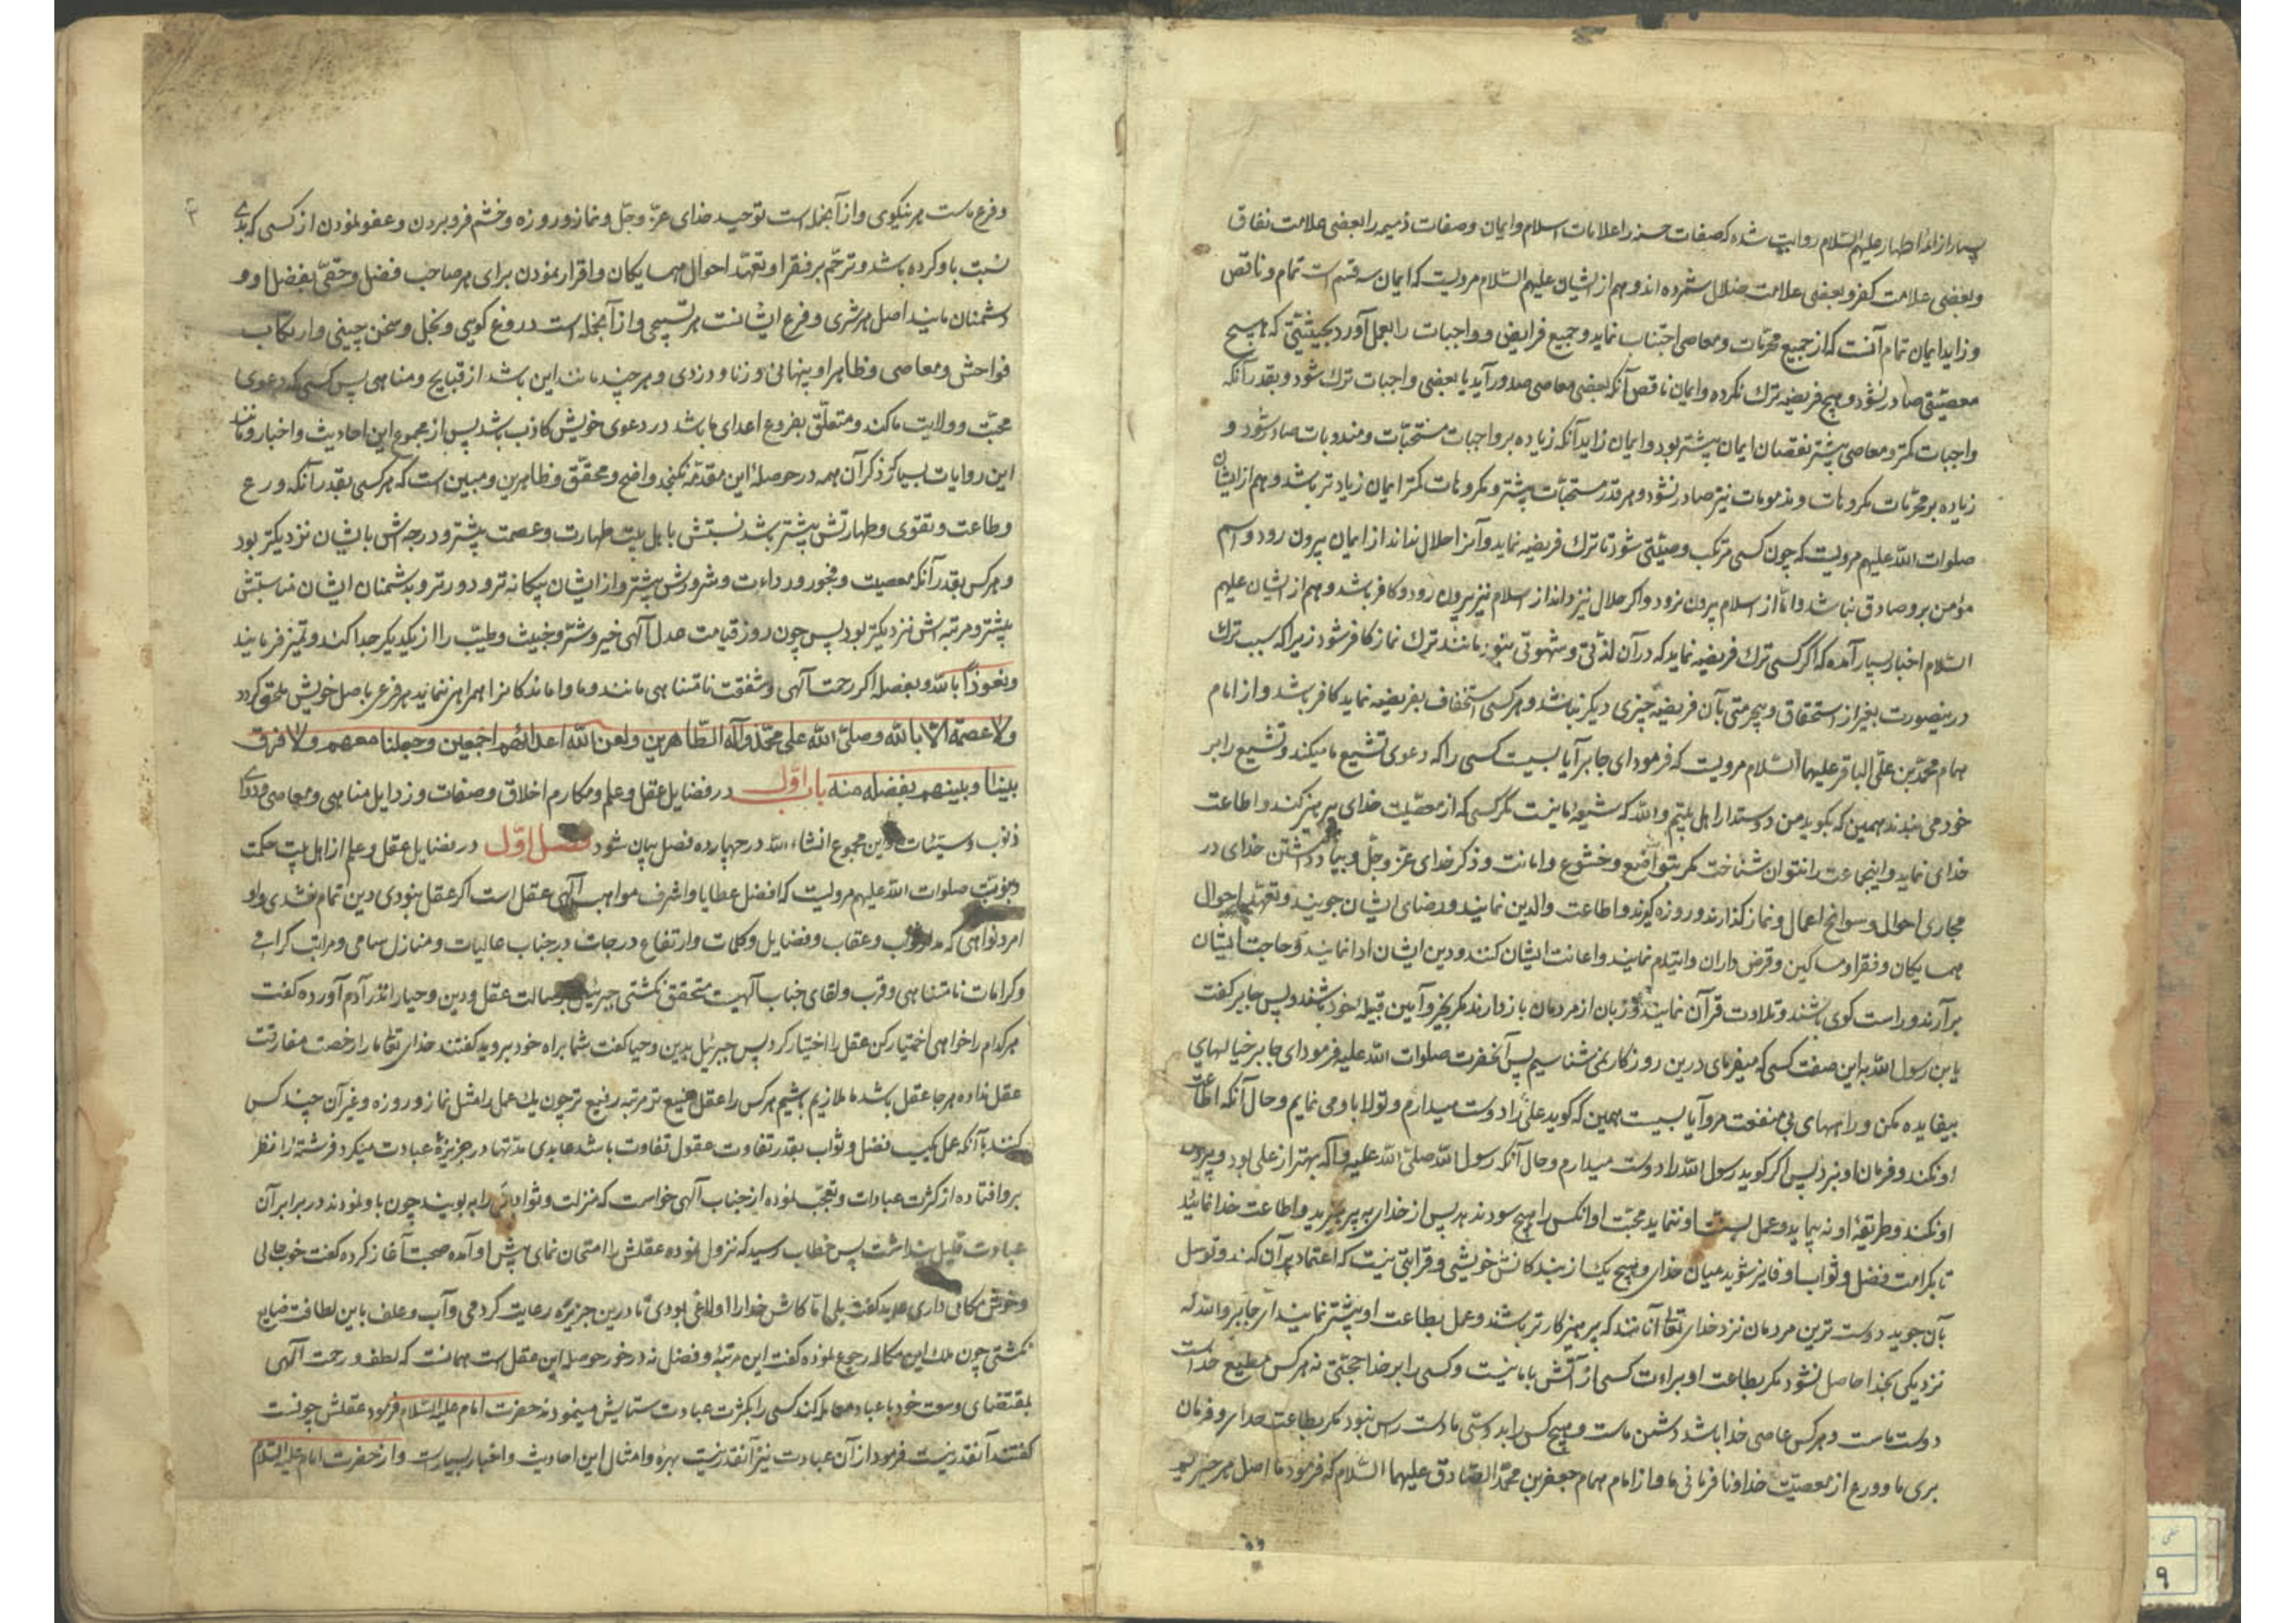 بسیار از ائمهٔ اطهار علیهم السّلام روایت شده که صفات حسنه را علامات اسلام و ایمان و صفات ذمیمه را بعضی علامت نفاق
و بعضی علامت کفر و بعضی علامت ضلال شمرده اند و هم از ایشان علیهم السّلام مرویست که ایمان سه قسم است تمام و ناقص
و زاید ایمان تمام آنست که از جمیع محرّمات و معاصی اجتناب نماید و جمیع فرایض و واجبات را بعمل آورد بحیثیتی که هیچ
معصیتی صادر نشود و هیچ فریضه ترك نکرده و ایمان ناقص آنکه بعضی معاصی صدور آید یا بعضی واجبات ترك شود و بقدر آنکه
واجبات کمتر و معاصی بیشتر نقصان ایمان بیشتر بود و ایمان زاید آنکه زیاده بر واجبات مستحبّات و مندوبات صادر شود و
زیاده بر محرّمات مکروهات و مذمومات نیز صادر نشود و هر قدر مستحبّات بیشتر و مکروهات کمتر ایمان زیاد تر باشد و هم از ایشان
صلوات اللّه علیهم مرویست که چون کسی مرتکب معصیتی شود تا ترك فریضه نماید و آنرا حلال نداند از ایمان بیرون رود و اسم
مؤمن بر و صادق نباشد و امّا از اسلام بیرون نرود و اکر حلال نیز داند از اسلام نیز بیرون رود و کافر باشد و هم از ایشان علیهم
السّلام اخبار بسیار آمده که اگر کسی ترك فریضه نماید که در آن لذّتی و شهوتی نبود مانند ترك نماز کافر شود زیرا که سبب ترك
درینصورت بغیر از استحقاق و بیحرمتی بآن فریضه چیزی دیکر نباشد و هر کسی استخفاف بفریضه نماید کافر باشد و از امام
همام محمّد بن علی الباقر علیهما السّلام مرویست که فرمود ای جابر آیا بسیت کسی را که دعوی تشیع ما میکند و تشیع را بر
خود می بندد همین که بکوید من دوستدار اهل بیتم و اللّه که شیعه ما نیست مکر کسی که از معصیت خدای بپرهیز کند و اطاعت
خدای نماید و اینجماعت را نتوان شناخت مکر بتواضع و خشوع و امانت و ذکر خدای عزّ و جلّ و بیاد داشتن خدای در
مجاری احوال و سوانح اعمال و نماز کذارند و روزه کیرند و اطاعت والدین نمایند و رضای ایشان جویند و تعهد احوال
همسایکان و فقرا و مساکین و قرض داران و ایتام نمایند و اعانت ایشان کنند و دین ایشان ادا نمایند و حاجت ایشان
برآرند و راست کوی باشند و تلاوت قرآن نمایند و زبان از مردمان باز دارند مکر بخیر و آمین قبیله خود باشند پس جابر کفت
یابن رسول اللّه به این صفت کسی که میفرمای درین روزکار نمی شناسیم پس آنحضرت صلوات اللّه علیه فرمود ای جابر خیالهای
بیفایده مکن و راههای بی منفعت مرو آیا بسیت همین که کوید علی را دوست میدارم و تولا باو می نمایم و حال آنکه اطاعت
او نکند و فرمان او نبرد پس اکر کوید رسول اللّه را دوست میدارم و حال آنکه رسول اللّه صلی اللّه علیه و آله بهتر از علی بود و پیروی
او نکند و طریقهٔ او نه پیماید و عمل بسنت او ننماید محبّت او آنکس را هیچ سود ندهد پس از خدای بپرهیزید و اطاعت خدا نمائید
تا بکرامت فضل و ثواب او فایز شوید میان خدای و هیچ یك از بندکانش خویشی و قرابتی نیست که اعتماد بر آن کنند و توسل
بآن جویند دوست ترین مردمان نزد خدای تعالی آنانند که پرهیزکار تر باشند و عمل بطاعت او بیشتر نمایند ای جابر و اللّه که
نزدیکی بخدا حاصل نشود مکر بطاعت او و براءت کسی از آتش با ما نیست و کسی را بر خدا حجتی نه هر کس مطیع خداست
دوست ماست و هر کس عاصی خدا باشد دشمن ماست و هیچ کس را بدوستی ما دست رس نبود مکر بطاعت خدای و فرمان
بری ما و ورع از معصیت خدا و نافرمانی ما و از امام همام جعفر بن محمّد الصّادق علیهما السّلام که فرمود ما اصل هر خیریم
و فرع ماست هر نیکوی و از آنجمله است توحید خدای عزّ و جلّ و نماز و روزه و خشم فرو بردن و عفو نمودن از کسی که بدی
نسبت باو کرده باشد و ترحّم بر فقرا و تعهّد احوال همسایکان و اقرار نمودن برای هر صاحب فضل و حقّی بفضل او و
دشمنان مایند اصل هر شری و فرع ایشانست هر قبیحی و از آنجمله است دروغ کویی و بخل و سخن چینی و ارتکاب
فواحش و معاصی و ظاهرا و پنهانی و زنا و دزدی و هر چند مانند این باشد از قبایح و مناهی پس کسی که دعوی
محبّت و ولایت ما کند و متعلّق بفروع اعدای ما باشد در دعوی خویش کاذب باشد پس از مجموع این احادیث و اخبار و مانند
این روایات بسیار که ذکر آن همه در حوصلهٔ این مقدّمه نکنجد واضح و محقّق و ظاهر و مبین است که هر کسی بقدر آنکه ورع
و طاعت و تقوی و طهارتش بیشتر باشد نسبتش باهل بیت طهارت و عصمت بیشتر و درجه اش بایشان نزدیکتر بود
و هر کس بقدر آنکه معصیت و فجور و رداءت و شرورش بیشتر و از ایشان بیکانه تر و دورتر و بدشمنان ایشان مناسبتش
بیشتر و مرتبه اش نزدیکتر بود پس چون روز قیامت عدل آلهی خیر و شر و خبیث و طیّب را از یکدیکر جدا کند و تمیز فرمایند
و نعوذ باللّه و بفضله اکر رحمت آلهی و شفقت نامتناهی مانند و ما وا ماندکانرا همراهی ننماید هر فرعی باصل خویش ملحق کردد
ولا عصمة الّا باللّه وصلّی اللّه علی محمّد وآله الطّاهرین ولعن اللّه اعدائهم اجمعین وجعلنا معهم ولا فرق
بیننا وبینهم بفضله ومنه باب اوّل در فضایل عقل و علم و مکارم اخلاق و صفات و رذایل مناهی و معاصی و
ذنوب و سیّئات و این مجموع انشاء اللّه در چهارده فصل بیان شود فصل اوّل در فضایل عقل و علم از اهل بیت حکمت
و نبوّت صلوات اللّه علیهم مرویست که افضل عطایا و اشرف مواهب آلهی عقل است اکر عقل نبودی دین تمام نشدی و او
امر و نواهی که ثواب و عقاب و فضایل و کمالات و ارتفاع درجات در جناب عالیات و منازل سامی و مراتب کرامی
و کرامات نامتناهی و قرب و لقای جناب آلهیت متحقق نکشتی جبرئیل برسالت عقل و دین و حیا را نزد آدم آورده کفت
هر کدام را خواهی اختیار کن عقل را اختیار کرد پس جبرئیل بدین و حیا کفت شما براه خود بروید کفتند خدای تعالی ما را رخصت مفارقت
عقل نداده هر جا عقل باشد ما ملازیم باشیم هر کس را عقل رفیع تر مرتبه رفیع تر چون یك عمل را مثل نماز و روزه و غیر آن چند کس
کنند با آنکه عمل یکیست فضل و ثواب بقدر تفاوت عقول تفاوت باشد عابدی مدّتها در جزیرهٔ عبادت میکرد فرشتهٔ را نظر
برو افتاده از کثرت عبادات و تعجّب نموده از جناب آلهی خواست که منزلت و ثواب او را به بیند چون باو نمودند در برابر آن
عبادت قلیل پنداشت پس خطاب رسید که نزول نموده عقلش را امتحان نمای پیش او آمده صحبت آغاز کرده کفت خوب جایی
و خوش مکانی داری عابد کفت بلی امّا کاش خدا را اولاغی بودی تا درین جزیره رعایت کردمی و آب و علف باین لطافت ضایع
نکشتی چون ملك این مکالمه رجوع نموده کفت این مرتبهٔ و فضل نه در خور حوصله این عقل است همانست که لطف و رحمت آلهی
بمقتضای وسعت خود با عباد معامله کند کسی را بکثرت عبادت ستایش مینمودند حضرت امام علیه السّلام فرمود عقلش چونست
کفتند آنقدر نیست فرمود از آن عبادت نیز آنقدر نیست بهره و امثال این احادیث و اخبار بسیارست و از حضرت امام علیه السّلام